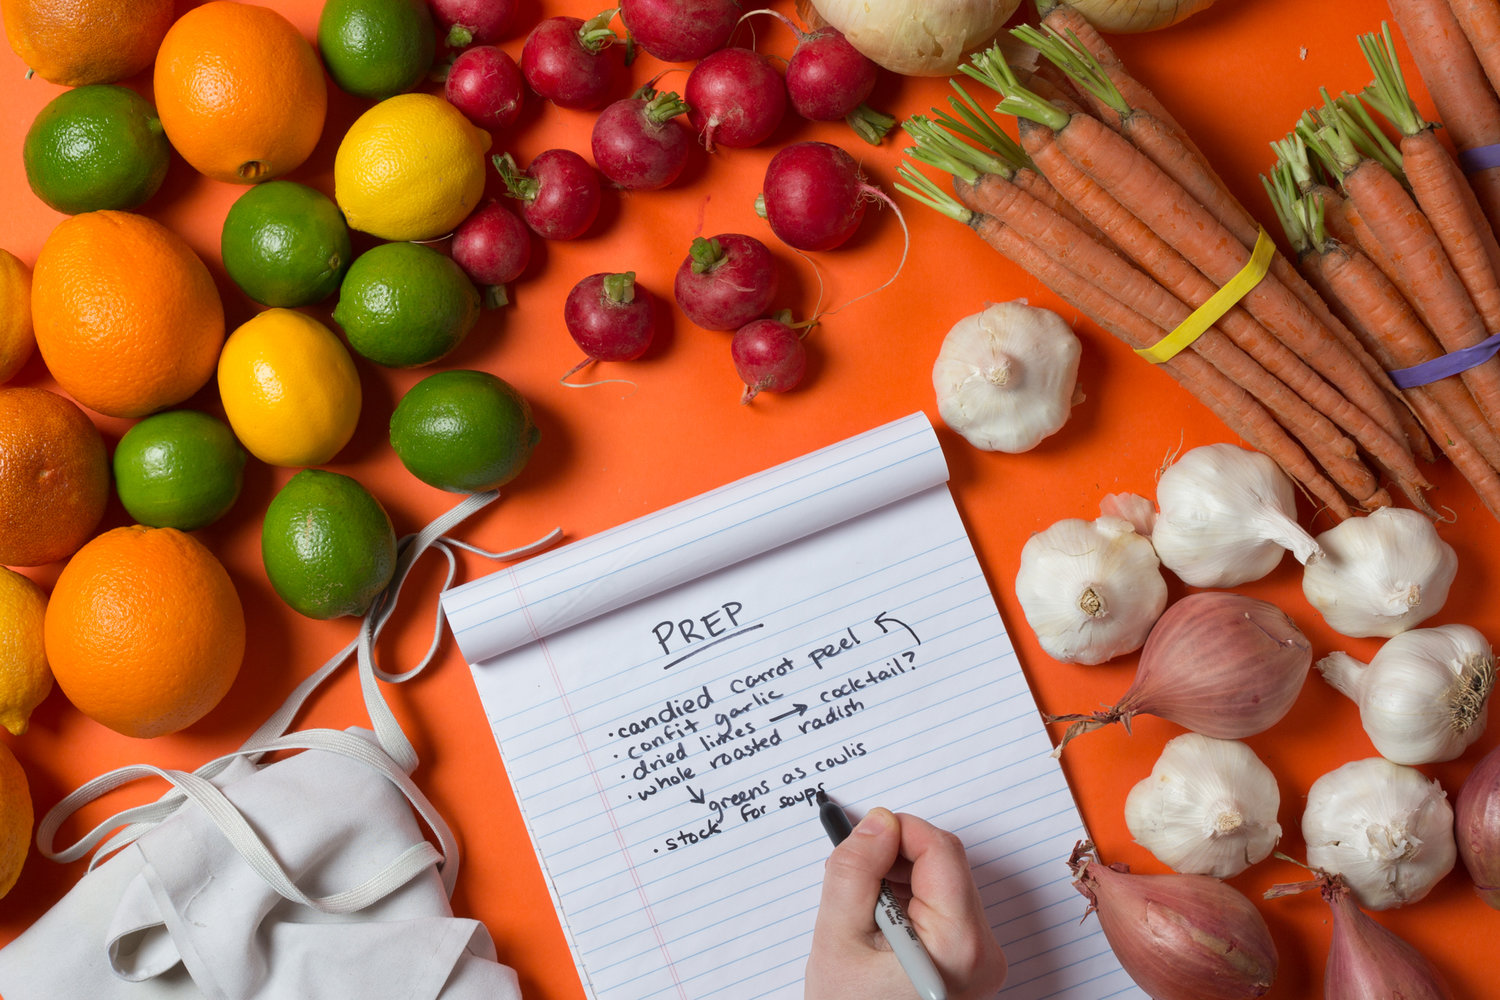 PREP
· candied carrot peel
· confit garlic
· dried limes → cocktail?
· whole roasted radish
↳ greens as coulis
· stock for soups
Sharpie